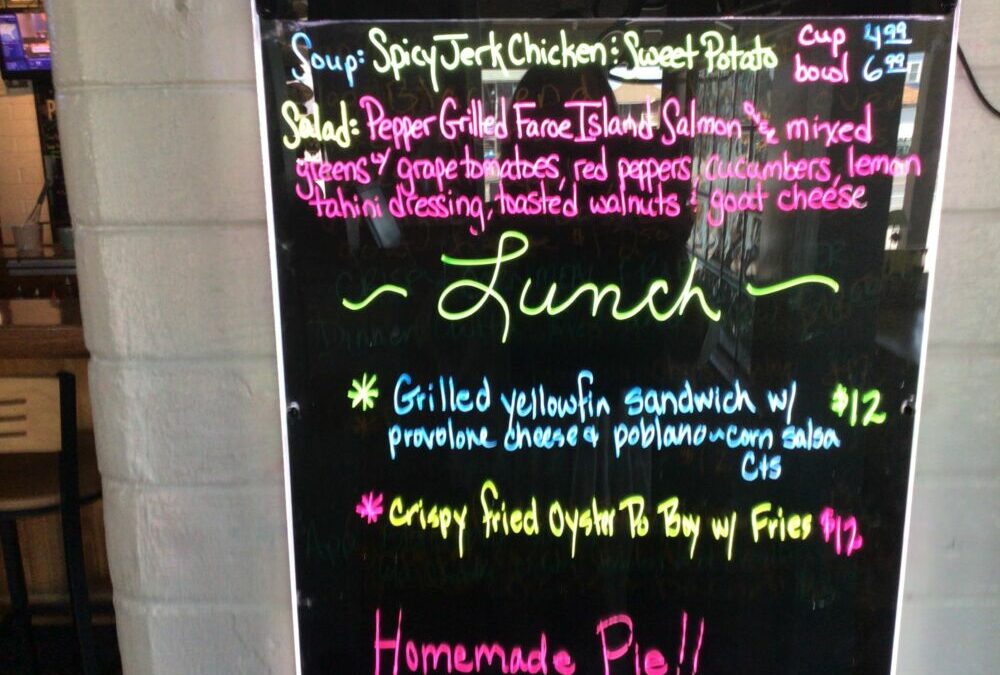 Soup: Spicy Jerk Chicken & Sweet Potato cup 4.99
bowl 6.99
Salad: Pepper Grilled Faroe Island Salmon over mixed
greens w/ grape tomatoes, red peppers, cucumbers, lemon
tahini dressing, toasted walnuts & goat cheese
~ Lunch ~
* Grilled yellowfin sandwich w/ $12
provolone cheese & poblano-corn salsa
Cts
* Crispy fried Oyster Po Boy w/ Fries $12
Homemade Pie!!